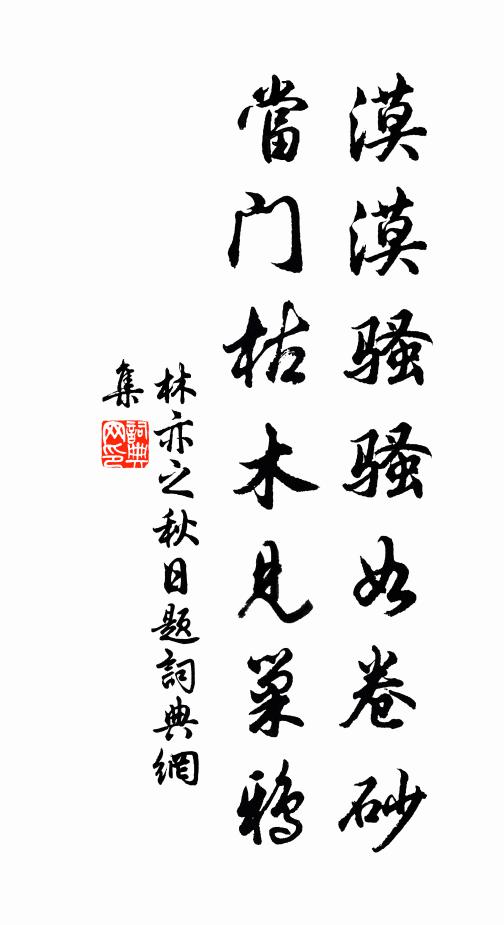 漠漠骚骚如卷砂
當门枯木見巢鴉
林亦之秋日题詞典網
集
詞典网印